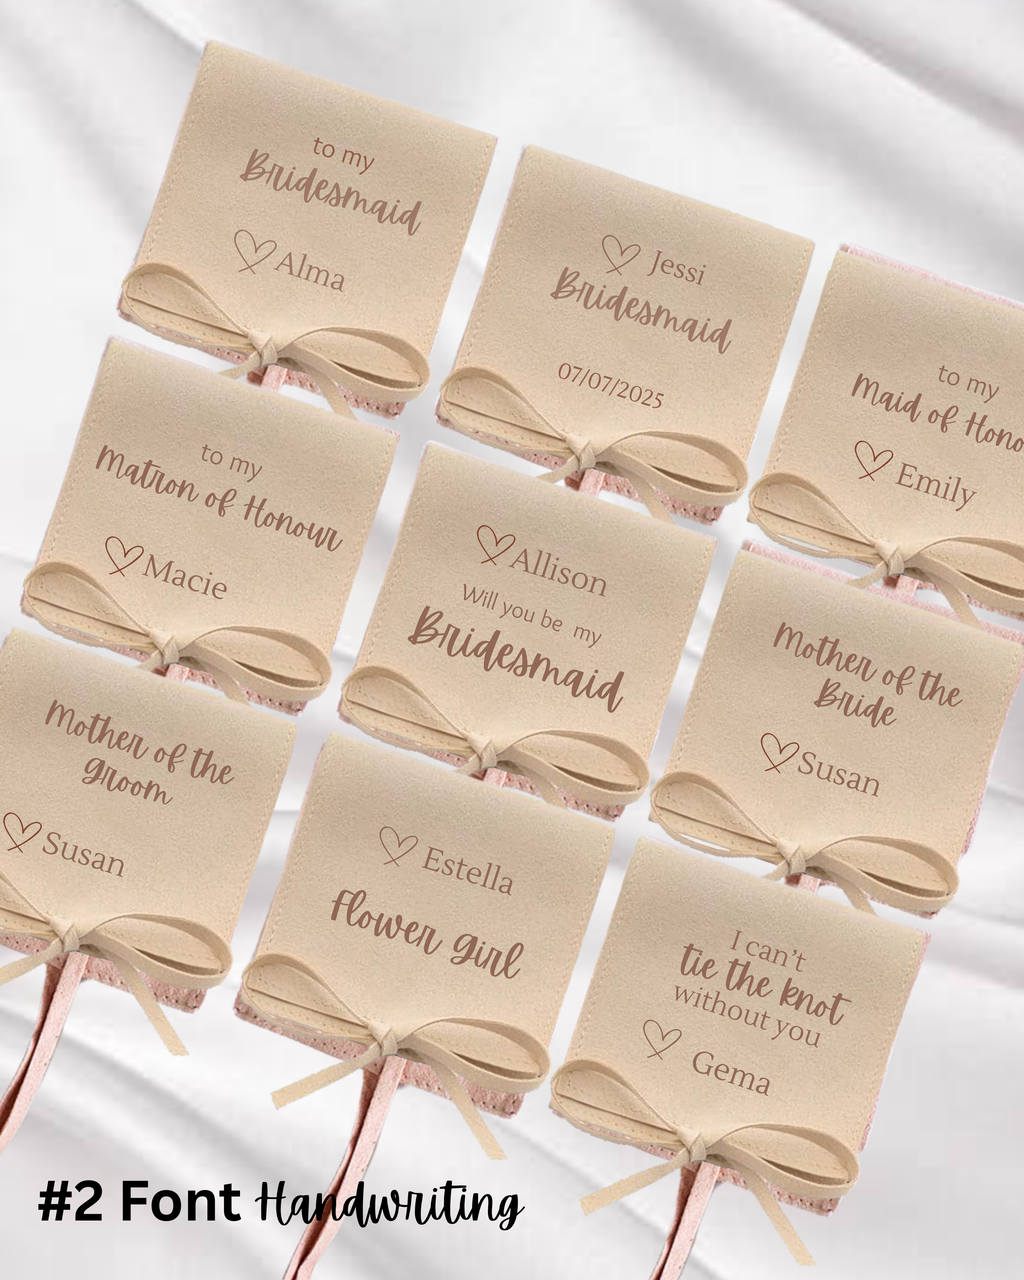 to my
Bridesmaid
Alma
Jessi
Bridesmaid
07/07/2025
to my
Maid of Hono
Emily
to my
Matron of Honour
Macie
Allison
Will you be my
Bridesmaid
Mother of the
Bride
Susan
Mother of the
groom
Susan
Estella
Flower girl
I can't
tie the knot
without you
Gema
#2 Font Handwriting